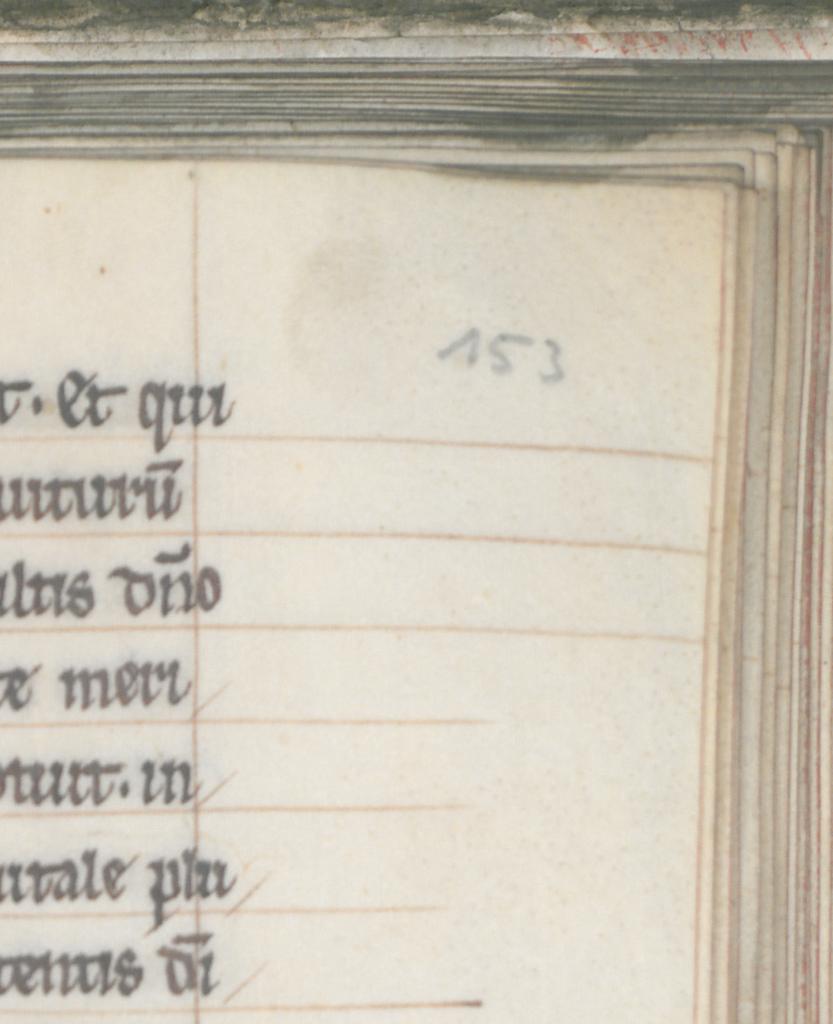 153
t. Et qui
uiturū
ultis dn̄o
te meri
otuit. in
uitale plu
tentis dī